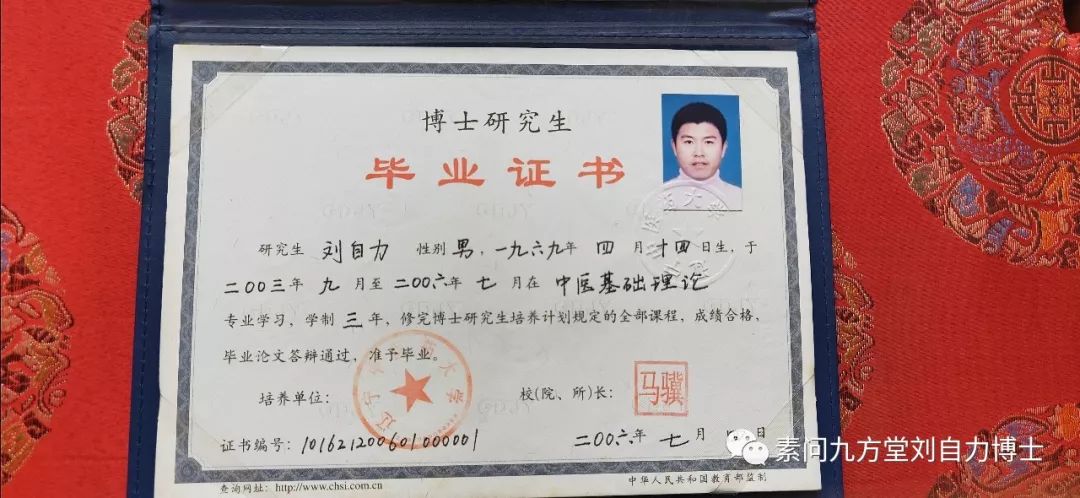 博士研究生
毕业证书
研究生 刘自力 性别 男，一九六九年 四 月 十四日生，于
二〇〇三年 九 月至二〇〇六年 七 月在 中医基础理论
专业学习，学制 三 年，修完博士研究生培养计划规定的全部课程，成绩合格，
毕业论文答辩通过，准予毕业。
培养单位：
校(院、所)长：
马骥
证书编号：101621200601000001
二〇〇六年 七 月 日
查询网址：http://www.chsi.com.cn
中华人民共和国教育部监制
素问九方堂刘自力博士